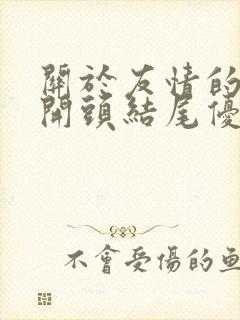 關於友情的
開頭結尾優
不會受傷的魚